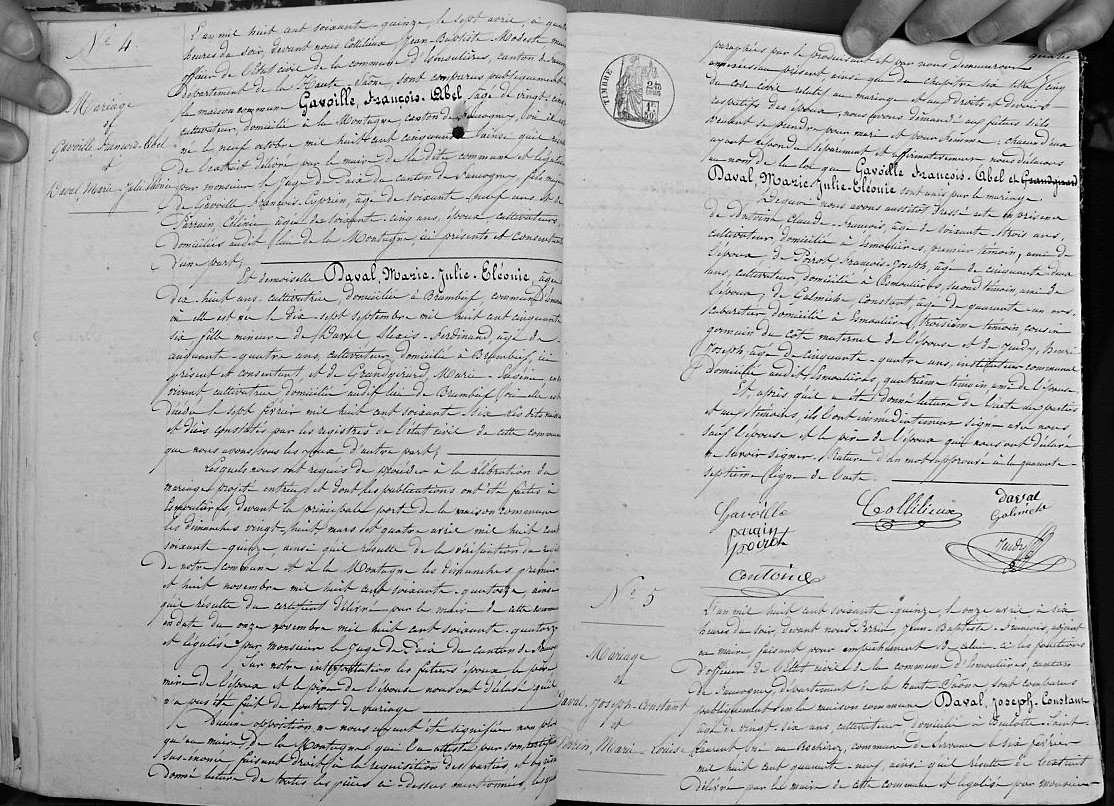 N° 4.
Mariage
et
Gavoille, François-Abel
et
Daval, Marie-Julie-Eléonie
L'an mil huit cent soixante-quinze le sept avril, à quatre
heures du soir, devant nous Collilieux Jean-Baptiste Modeste maire
officier de l'Etat civil de la commune d'Esmoulières, canton de
département de la Haute Saône, sont comparus publiquement
la maison commune Gavoille, François-Abel, âgé de vingt-cinq
cultivateur, domicilié à la Montagne canton de Vauvogney, où il est
né le neuf octobre mil huit cent cinquante ainsi qu'il
de l'extrait délivré par le maire de la dite commune et légalisé
par monsieur le Juge de Paix du canton de fils majeur
de Gavoille François âge de soixante-neuf ans, et de
Parrain, Céline, âgée de soixante-cinq ans, époux cultivateurs
domiciliés audit lieu de la Montagne, ici présents et consentants
d'une part;
Et demoiselle Daval, Marie-Julie-Eléonie, âgée
dix huit ans, cultivatrice, domiciliée à Brumbif, commune
où elle est née le dix-sept septembre mil huit cent cinquante
six, fille mineure de Daval Alexis-Ferdinand, âgé de
cinquante-quatre ans, cultivateur, domicilié à Brumbif, ici
présent et consentant, et de Grandgirard, Marie en son
vivant cultivatrice domiciliée audit lieu de Brumbif où elle est
décédée le sept février mil huit cent soixante six
et décès constatés par les registres de l'état civil de cette commune
que nous avons sous les yeux d'autre part;
Lesquels nous ont requis de procéder à la célébration du
mariage projeté entre eux et dont les publications ont été faites à
Esmoulières, devant la principale porte de la maison commune
les dimanches vingt-huit mars et quatre avril mil huit cent
soixante-quinze, ainsi qu'il résulte de la vérification
de notre commune et à la Montagne les dimanches premier
et huit novembre mil huit cent soixante-quatorze, ainsi
qu'il résulte du certificat délivré par le maire de cette commune
en date du onze novembre mil huit cent soixante-quatorze
et légalisé par monsieur le Juge de Paix du canton de
Sur notre interpellation les futurs époux le père
mère de l'époux et le père de l'épouse nous ont déclaré qu'il
n'a pas été fait de contrat de mariage
Aucune opposition ne nous ayant été signifiée non plus
qu'au maire de la Montagne qui l'atteste par son certificat
sus-énoncé, faisant droit à la réquisition des parties et après
donné lecture de toutes les pièces ci-dessus mentionnées,
TIMBRE
paraphées par le produisant et par nous demeureront
annexées au présent ainsi que du chapitre six titre cinq
du code civil relatif au mariage et aux droits et devoirs
respectifs des époux, nous avons demandé aux futurs s'ils
veulent se prendre pour mari et pour femme; chacun d'eux
ayant répondu séparément et affirmativement nous déclarons
au nom de la loi que Gavoille François-Abel et Grandgirard
Daval, Marie-Julie-Eléonie sont unis par le mariage
De quoi nous avons aussitôt dressé acte en présence
de Antoine Claude-François, âgé de soixante-trois ans,
cultivateur, domicilié à Esmoulières, premier témoin, ami de
l'époux, de Poirot François-Joseph, âgé de cinquante-deux
ans, cultivateur, domicilié à Esmoulières, second témoin, ami de
l'époux, de Galmiche, Constant, âgé de quarante-un ans,
cabaretier, domicilié à Esmoulières, troisième témoin, cousin
germain du côté maternel de l'épouse et de Jeudy, Henri
Joseph, âgé de cinquante-quatre ans, instituteur communal
domicilié audit Esmoulières, quatrième témoin ami de l'épouse
Et, après qu'il a été donné lecture de l'acte aux parties
et aux témoins, ils l'ont immédiatement signé avec nous
sauf l'épouse et le père de l'époux qui nous ont déclaré
ne savoir signer. Rature d'un mot approuvée à la quarante-
septième ligne de l'acte.
Gavoille
Collilieux
Daval
Galmiche
parrin
poirot
Jeudy
antoine
N° 5
Mariage
de
Daval, Joseph-Constant
et
Perrin, Marie-Louise
L'an mil huit cent soixante quinze le onze avril à six
heures du soir, devant nous Perrin, Jean-Baptiste-François, adjoint
au maire faisant pour empêchement de celui-ci les fonctions
d'officier de l'Etat civil de la commune d'Esmoulières, canton
de département de la haute Saône sont comparus
publiquement en la maison commune Daval, Joseph-Constant
âgé de vingt-six ans, cultivateur domicilié à Saint-
né au commune de Servance le six février
mil huit cent quarante-neuf ainsi qu'il résulte de l'extrait
délivré par le maire de cette commune et légalisé par monsieur